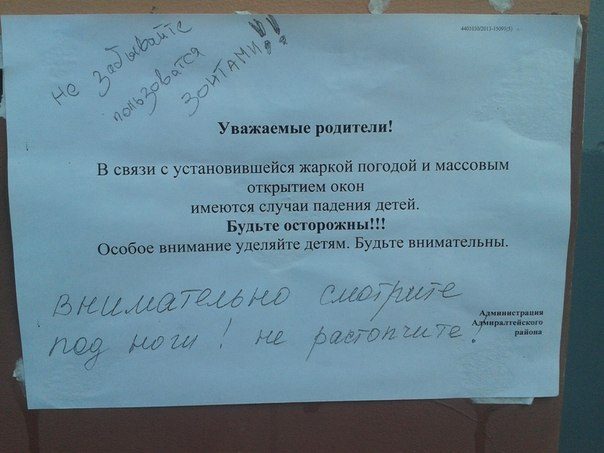 4401030/2013-15093(5)
не забывайте
пользоватся
зонтами!!
Уважаемые родители!
В связи с установившейся жаркой погодой и массовым
открытием окон
имеются случаи падения детей.
Будьте осторожны!!!
Особое внимание уделяйте детям. Будьте внимательны.
Внимательно смотрите
под ноги! не растопчите!
Администрация
Адмиралтейского
района